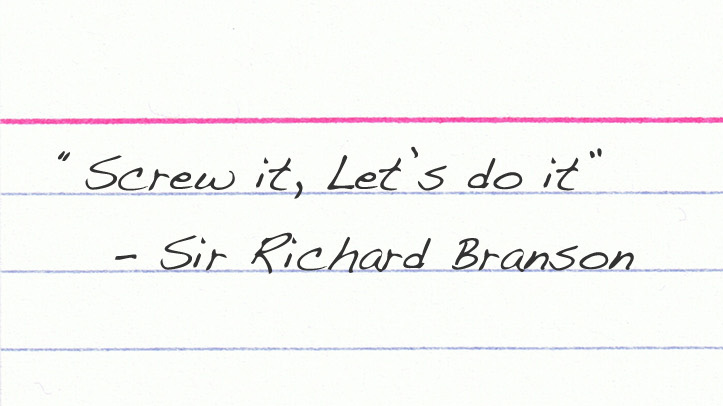 "Screw it, Let's do it"
- Sir Richard Branson